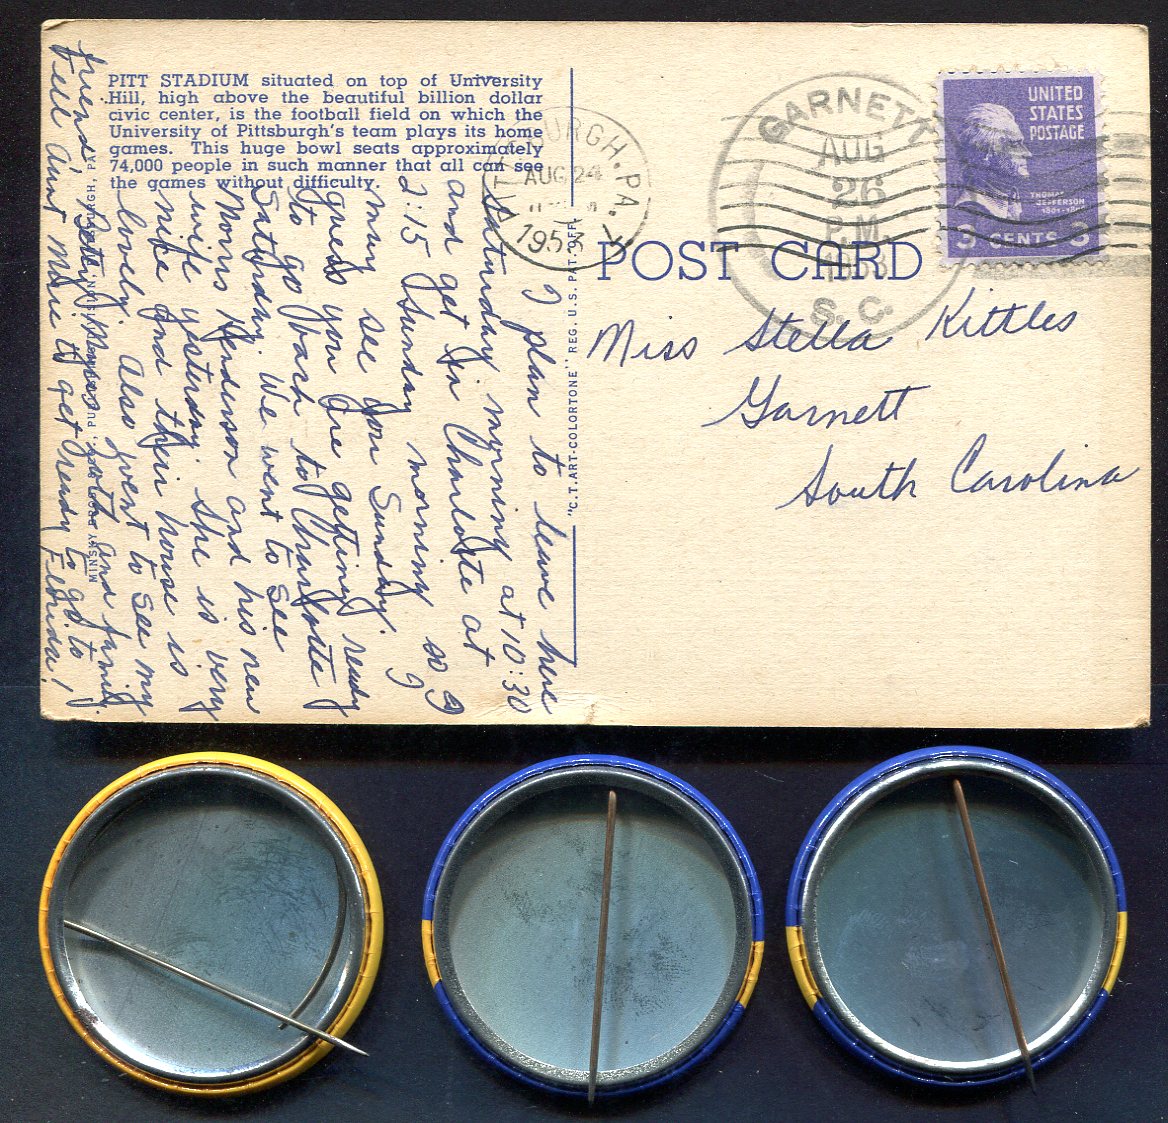 PITT STADIUM situated on top of University
Hill, high above the beautiful billion dollar
civic center, is the football field on which the
University of Pittsburgh's team plays its home
games. This huge bowl seats approximately
74,000 people in such manner that all can see
the games without difficulty.
I plan to leave here
Saturday morning at 10:30
and get in Charlotte at
2:15 Sunday morning so I
may see you Sunday. I
guess you are getting ready
to go back to Charlotte
Saturday. We went to see
Morris Henderson and his new
wife yesterday. She is very
nice and their house is
lovely. Also went to see my
friend, Betty and family.
Tell Aunt to get ready to go to
Florida!
MINSKY BROS. PITTSBURGH, PA.
"C.T. ART-COLORTONE" REG. U.S. PAT. OFF.
PITTSBURGH, PA.
AUG 24
GARNETT
AUG
26
P.M.
S. C.
UNITED
STATES
POSTAGE
THOMAS
JEFFERSON
3 CENTS 3
POST CARD
Miss Stella Kittles
Garnett
South Carolina